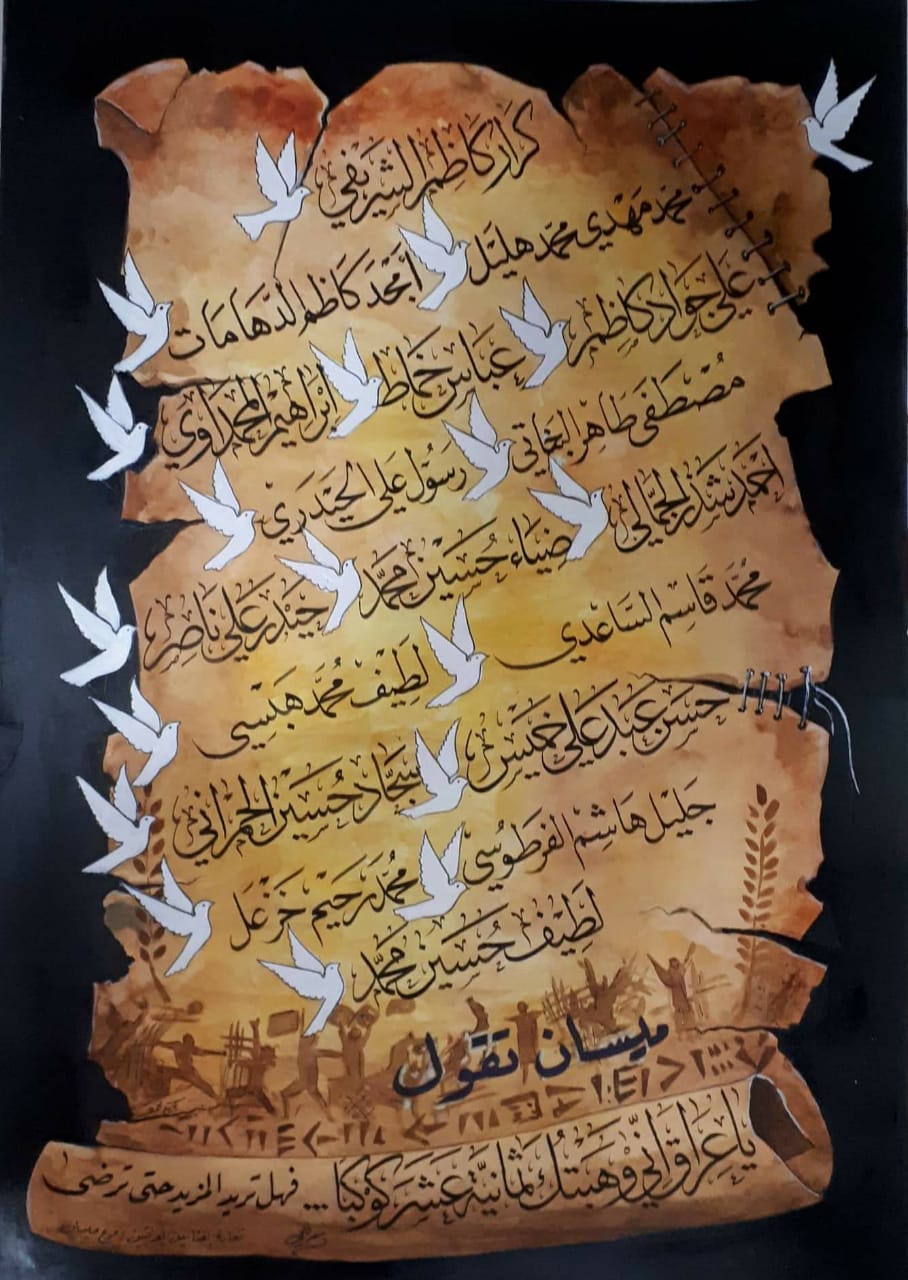 كرار كاظم الشريفي
محمد مهدي محمد هليل
أمجد كاظم الدهامات
علي جواد كاظم
عباس خماط
ابراهيم المحمداوي
مصطفى طاهر البخاتي
رسول علي الحيدري
احمد شذر الجمالي
ضياء حسين محمد
حيدر علي ناصر
محمد قاسم الساعدي
لطيف محمد هبيسي
حسن عبد علي خميس
سجاد حسين الحمراني
جليل هاشم الفرطوسي
محمد رحيم خزعل
لطيف حسين محمد
ميسان تقول
يا عراق اني وهبتك ثمانية عشر كوكبا ... فهل تريد المزيد حتى ترضى
نقابة الفنانين العراقيين / فرع ميسان